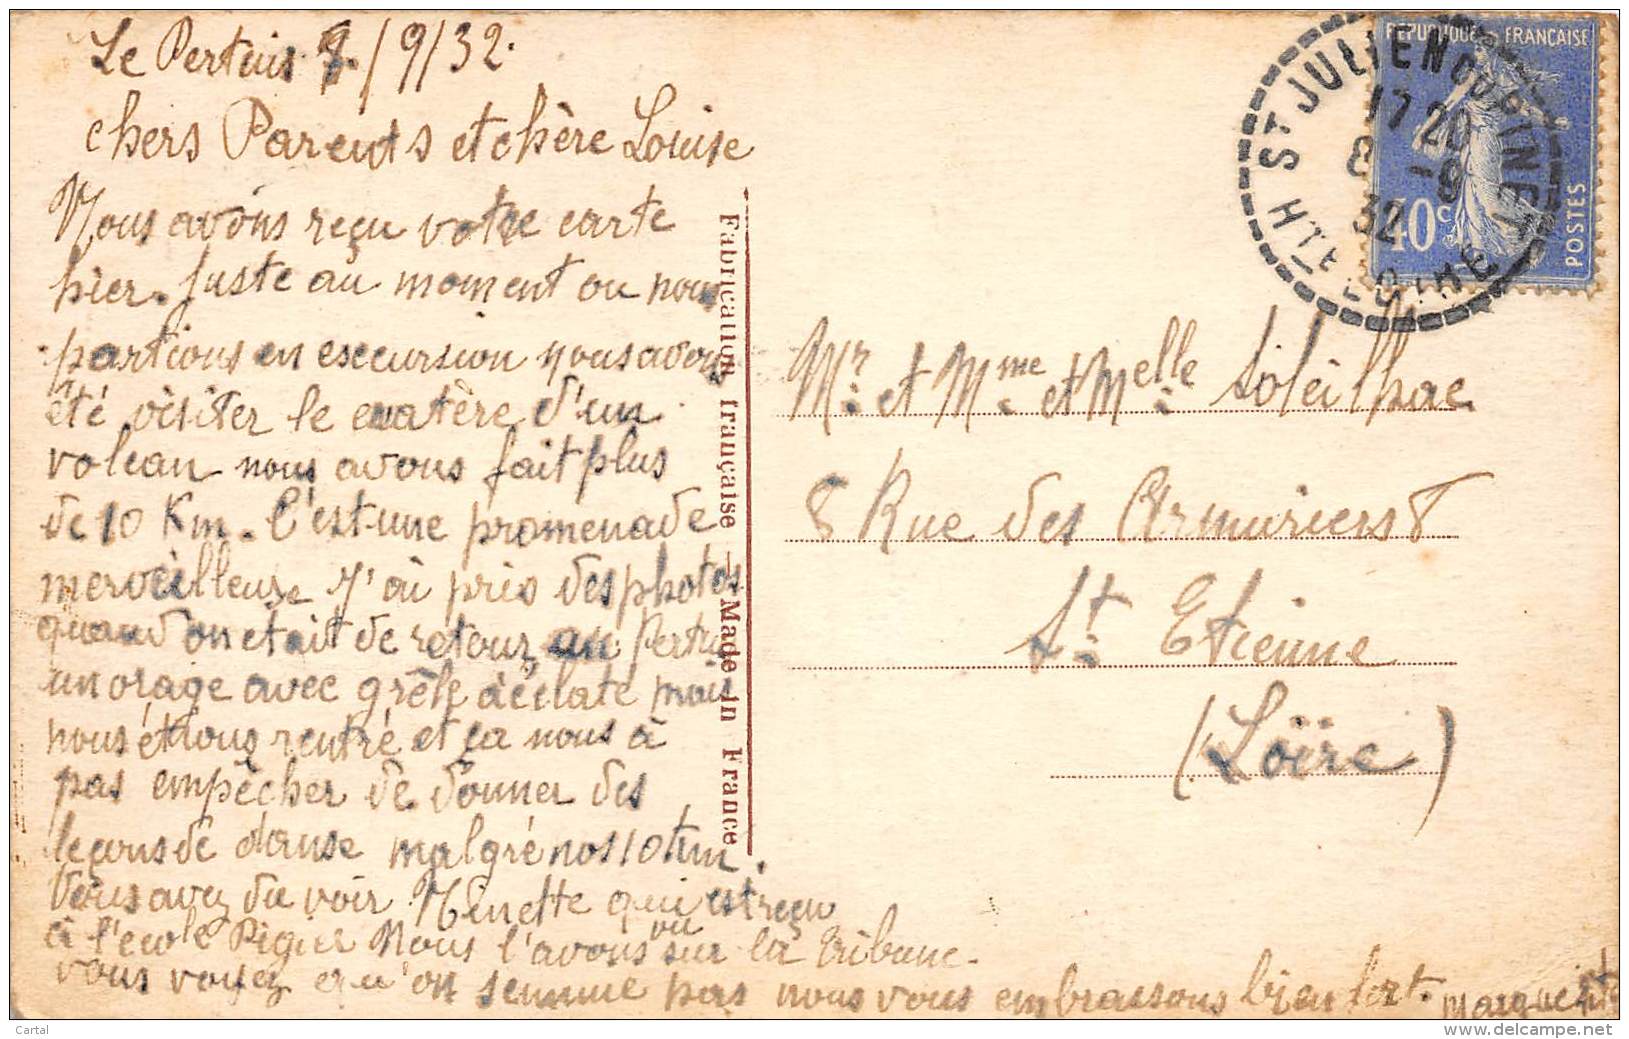 Le Pertuis 7/9/32.
chers Parents et chère Louise
Nous avons reçu votre carte
hier. Juste au moment ou nous
partions en escursion nous avons
été visiter le cratère d'un
volcan nous avons fait plus
de 10 Km. C'est une promenade
merveilleuse J'ai pris des photos
quand on était de retour au Pertuis
un orage avec grêle à éclaté mais
nous étions rentré et ça nous à
pas empêcher de donner des
leçons de danse malgré nos 10 km.
Vous avez du voir Minette qui est reçu
à l'école Pigier Nous l'avons vu sur la Tribune.
vous voyez qu'on semmue pas nous vous embrassons bien fort. Marguerite
Fabrication française — Made in France
REPUBLIQUE FRANÇAISE
40c
POSTES
ST JULIEN
HTE LOIRE
17 20
8 -9
32
Mr. et Mme. et Melle Soleilhac
8 Rue des Armuriers 8
St. Etienne
(Loïre)
Cartal
www.delcampe.net